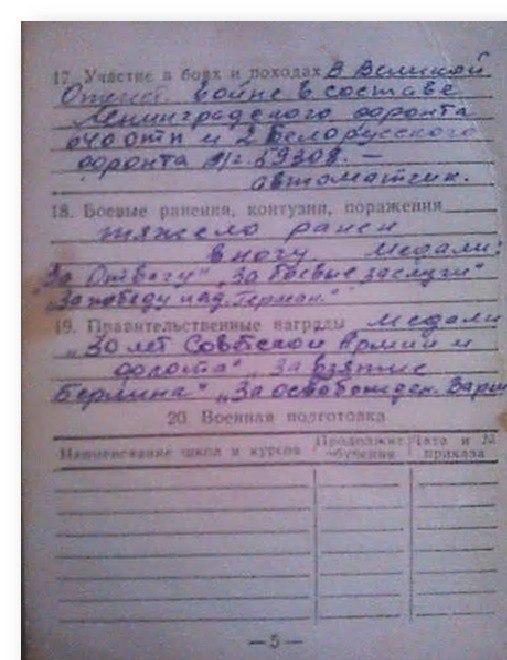 17. Участие в боях и походах В Великой
Отечеств. войне в составе
Ленинградского фронта
и 2 Белорусского
фронта —
автоматчик.
18. Боевые ранения, контузии, поражения
тяжело ранен
в ногу. Медали:
"За Отвагу" "За боевые заслуги"
"За победу над Герман."
19. Правительственные награды Медали
"30 лет Советской Армии и
флота" "За взятие
Берлина" "За освобожден. Варш
20. Военная подготовка
Наименование школ и курсов Продолжит. обучения Дата и № приказа
— 5 —